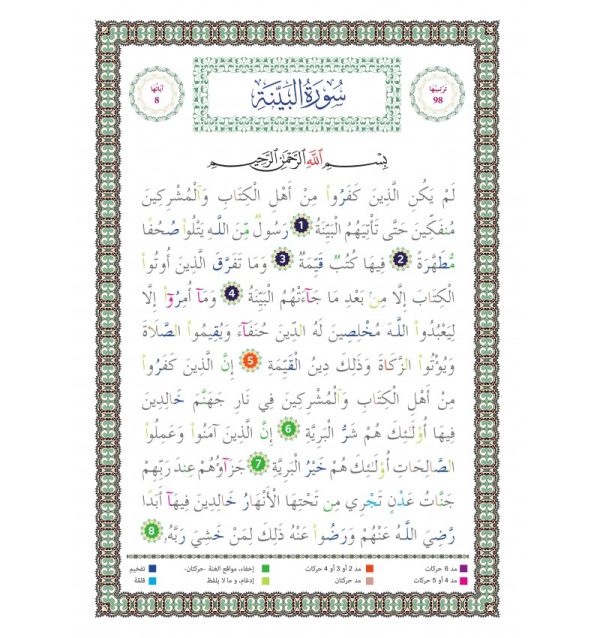 ترتيبها
98
سُورَةُ البَيِّنَة
آياتها
8
بِسْمِ ٱللَّهِ ٱلرَّحْمَٰنِ ٱلرَّحِيمِ
لَمْ يَكُنِ الَّذِينَ كَفَرُوا مِنْ أَهْلِ الْكِتَابِ وَالْمُشْرِكِينَ
مُنفَكِّينَ حَتَّى تَأْتِيَهُمُ الْبَيِّنَةُ 1 رَسُولٌ مِّنَ اللَّهِ يَتْلُوا صُحُفًا
مُّطَهَّرَةً 2 فِيهَا كُتُبٌ قَيِّمَةٌ 3 وَمَا تَفَرَّقَ الَّذِينَ أُوتُوا
الْكِتَابَ إِلَّا مِنْ بَعْدِ مَا جَآءَتْهُمُ الْبَيِّنَةُ 4 وَمَآ أُمِرُوٓا إِلَّا
لِيَعْبُدُوا اللَّهَ مُخْلِصِينَ لَهُ الدِّينَ حُنَفَآءَ وَيُقِيمُوا الصَّلَاةَ
وَيُؤْتُوا الزَّكَاةَ وَذَلِكَ دِينُ الْقَيِّمَةِ 5 إِنَّ الَّذِينَ كَفَرُوا
مِنْ أَهْلِ الْكِتَابِ وَالْمُشْرِكِينَ فِي نَارِ جَهَنَّمَ خَالِدِينَ
فِيهَا أُوْلَٓئِكَ هُمْ شَرُّ الْبَرِيَّةِ 6 إِنَّ الَّذِينَ آمَنُوا وَعَمِلُوا
الصَّالِحَاتِ أُوْلَٓئِكَ هُمْ خَيْرُ الْبَرِيَّةِ 7 جَزَآؤُهُمْ عِندَ رَبِّهِمْ
جَنَّاتُ عَدْنٍ تَجْرِي مِن تَحْتِهَا الْأَنْهَارُ خَالِدِينَ فِيهَآ أَبَدًا
رَّضِيَ اللَّهُ عَنْهُمْ وَرَضُوا عَنْهُ ذَلِكَ لِمَنْ خَشِيَ رَبَّهُ 8
مد 6 حركات
مد 2 أو 3 أو 4 حركات
إخفاء، مواقع الغنة -حركتان-
تفخيم
مد 4 أو 5 حركات
مد حركتان
إدغام، و ما لا يلفظ
قلقلة